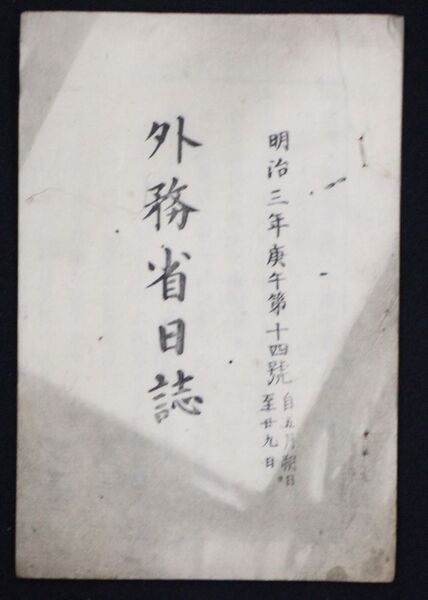 明治三年庚午第十四號 自五月朔日
至廿九日
外務省日誌